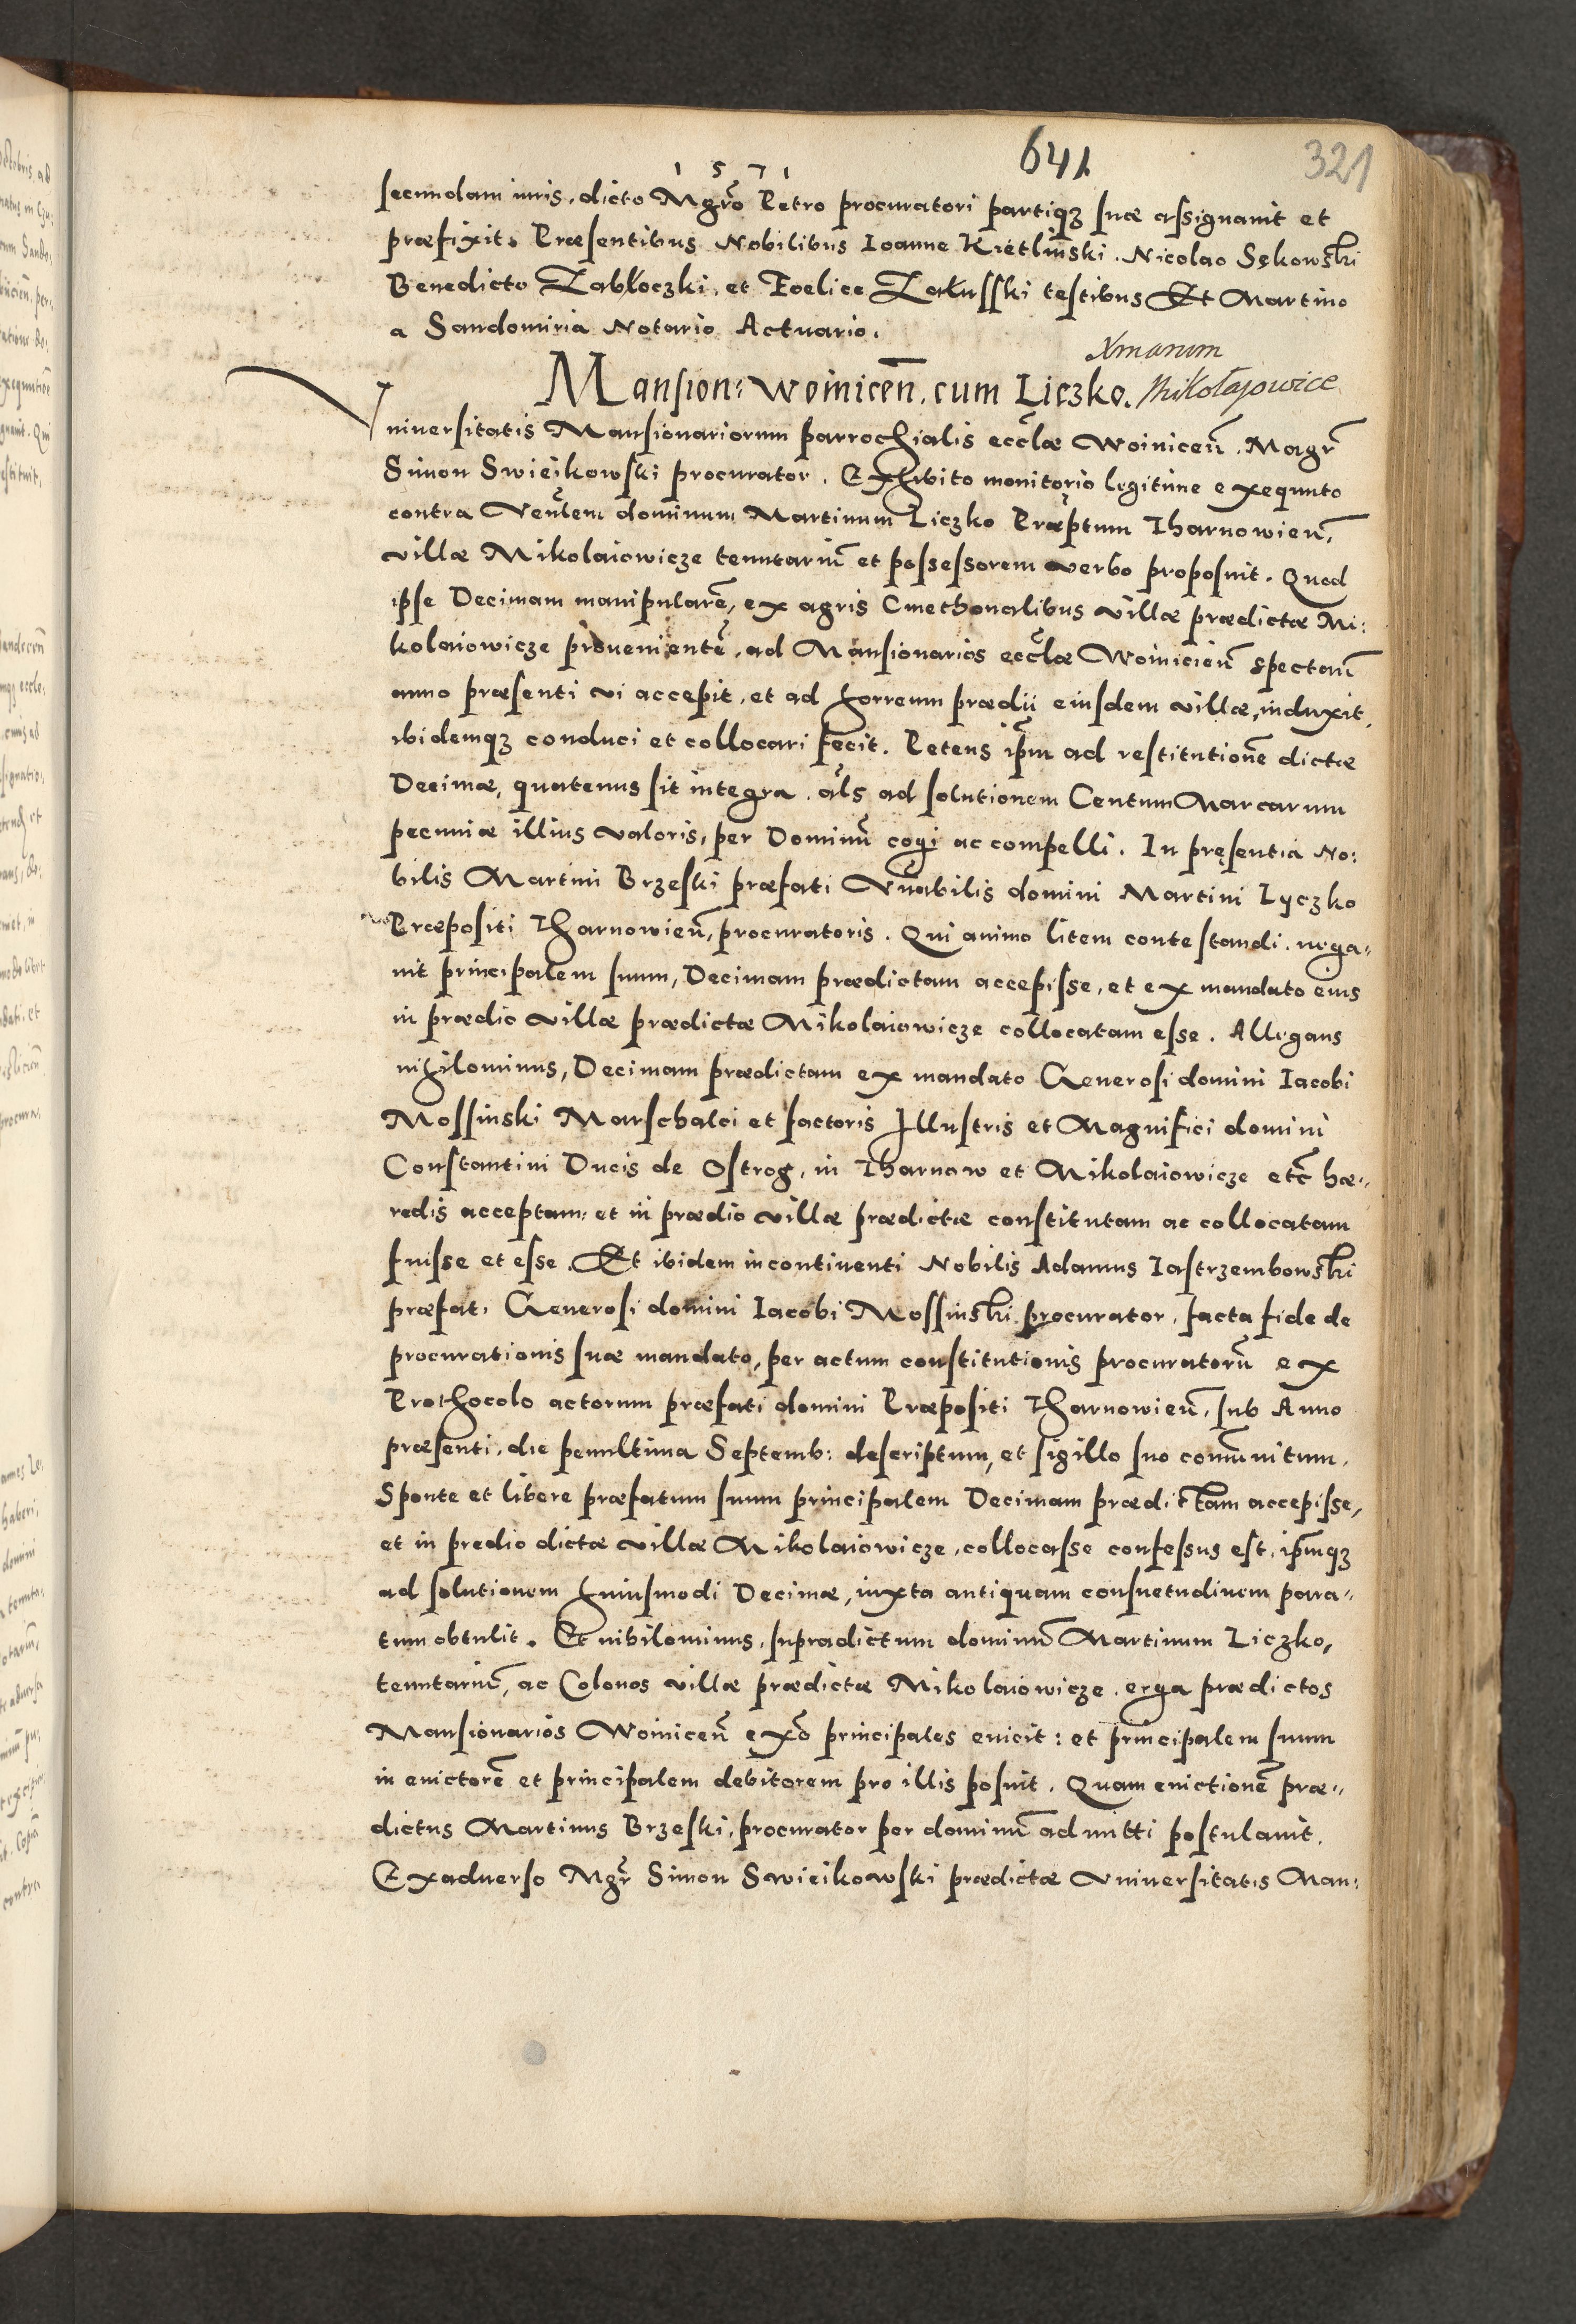 641
321
1 5 7 1
secundam iuris, dicto Mgrō Petro procuratori partiqꝫ suæ assignauit et
præfixit. Præsentibus Nobilibus Ioanne Kietlinski. Nicolao Sękowski
Benedicto Zabłoczki, et Foelice Załusski testibus Et Martino
a Sandomiria Notario Actuario.
Mansion: Woinicēn. cum Liczko.
Mikołajowice
Vniuersitatis Mansionariorum parrochialis ecclæ Woiniceñ. Magr̄
Simon Swieikowski procurator. Exhibito monitorio legitime exequuto
contra Venlem dominum Martinum Liczko Præptum Tharnowieñ,
villæ Mikolaiowicze tenutariū et possessorem verbo proposuit. Quod
ipse Decimam manipularē, ex agris Cmethonalibus villæ prædictæ Mi:
kolaiowicze prouenientē, ad Mansionarios ecclæ Woinicieñ spectañ
anno præsenti vi accepit, et ad horreum prædii eiusdem villæ, induxit,
ibidemqꝫ conduci et collocari fecit. Petens ipm̄ ad restitutionē dictæ
Decimæ, quatenus sit integra, als ad solutionem Centum Marcarum
pecuniæ illius valoris, per Dominū cogi ac compelli. In pręsentia No:
bilis Martini Brzeski præfati Vnabilis domini Martini Lyczko
Præpositi Tharnowieñ, procuratoris. Qui animo litem contestandi, nega-
uit principalem suum, Decimam prædictam accepisse, et ex mandato eius
in prædio villæ prædictæ Mikolaiowicze collocatam esse. Allegans
nihilominus, Decimam prædictam ex mandato Generosi domini Iacobi
Mossinski Marschalci et factoris Illustris et Magnifici domini
Constantini Ducis de Ostrog, in Tharnow et Mikolaiowicze etc̄ hæ-
redis acceptam: et in prædio villæ prædictæ constitutam ac collocatam
fuisse et esse. Et ibidem incontinenti Nobilis Adamus Iastrzembowski
præfat. Generosi domini Iacobi Mossinski procurator, facta fide de
procurationis suæ mandato, per actum constitutionis procuratorū ex
Prothocolo actorum præfati domini Præpositi Tharnowieñ, sub Anno
præsenti, die penultima Septemb: descriptum, et sigillo suo com̄unitum.
Sponte et libere præfatum suum principalem Decimam prædictam accepisse,
et in predio dictæ villæ Mikolaiowicze, collocasse confessus est, ipm̄qꝫ
ad solutionem huiusmodi Decimæ, iuxta antiquam consuetudinem para-
tum obtulit. Et nihilominus, supradictum dominū Martinum Liczko,
tenutariū, ac Colonos villæ prædictæ Mikolaiowicze, erga prædictos
Mansionarios Woiniceñ exō principales euicit: et principalem suum
in euictorē et principalem debitorem pro illis posuit. Quam euictionē præ-
dictus Martinus Brzeski, procurator per dominū admitti postulauit.
Exaduerso Mgr̄ Simon Swieikowski prædictæ Vniuersitatis Man: